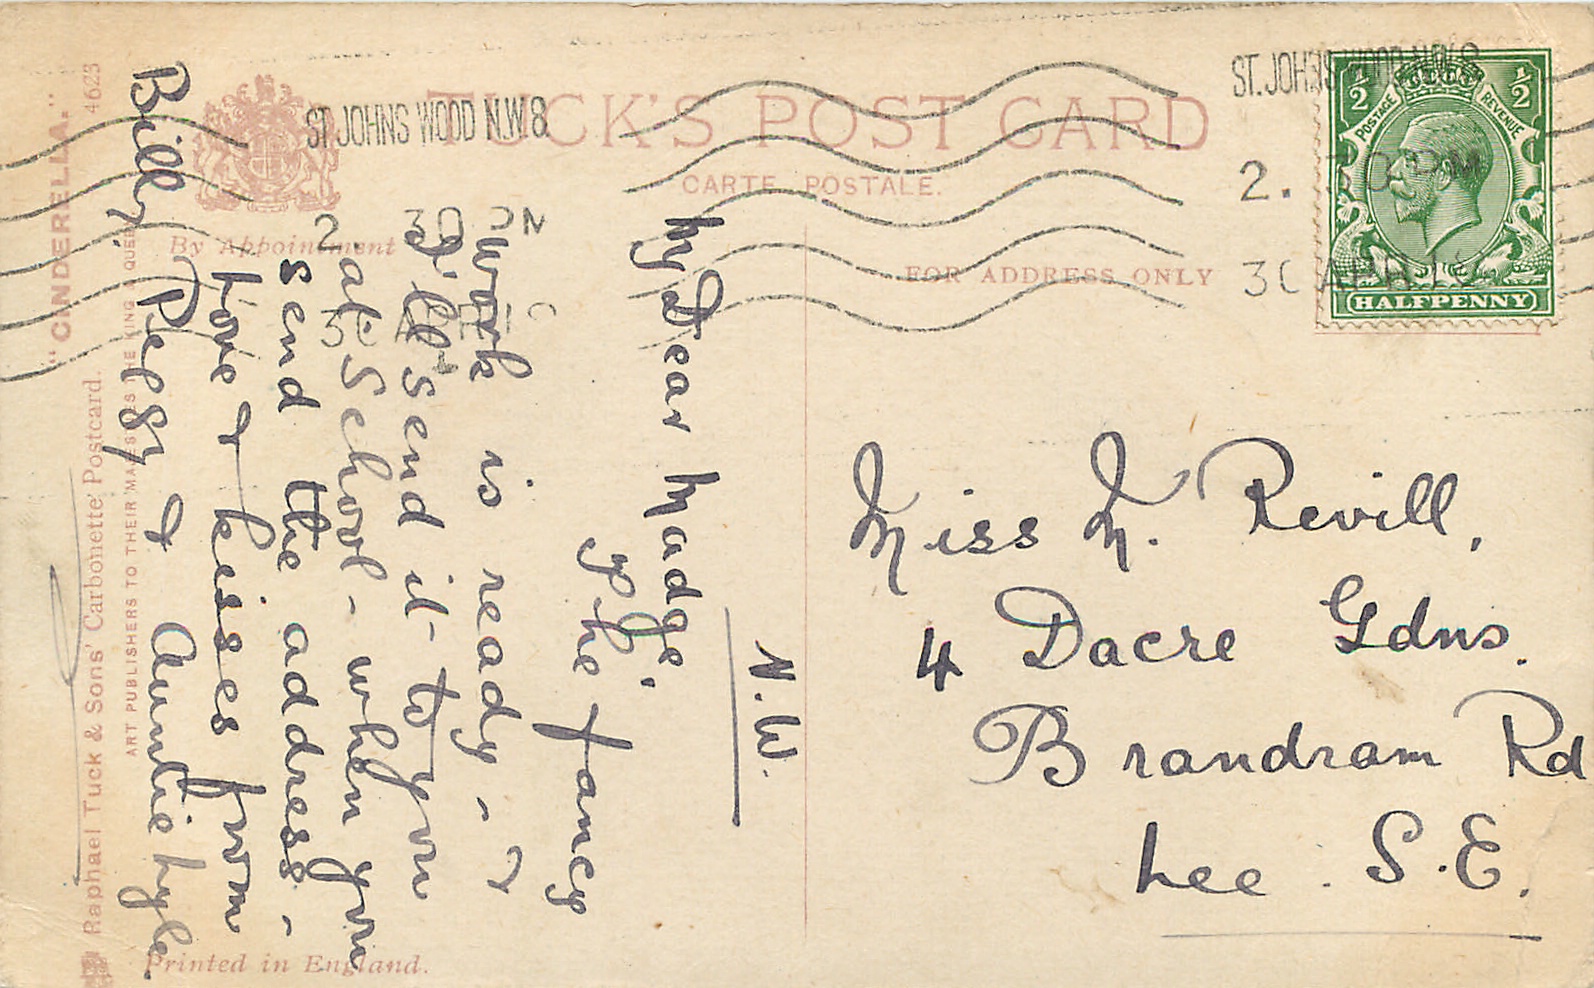 TUCK'S POST CARD
CARTE POSTALE.
By Appointment
FOR ADDRESS ONLY
ST. JOHNS WOOD N.W.8
ST. JOHNS WOOD N.W.8
2.30 PM
30 APR
½ ½
POSTAGE REVENUE
HALFPENNY
N.W.
My Dear Madge,
The fancy
work is ready - &
I'll send it to you
at School - when you
send the address -
love & kisses from
Billy, Peggy & Auntie
Miss M. Revill,
4 Dacre Gdns.
Brandram Rd
Lee. S.E.
"CINDERELLA." 4623
Raphael Tuck & Sons' "Carbonette" Postcard.
ART PUBLISHERS TO THEIR MAJESTIES THE KING & QUEEN
Printed in England.